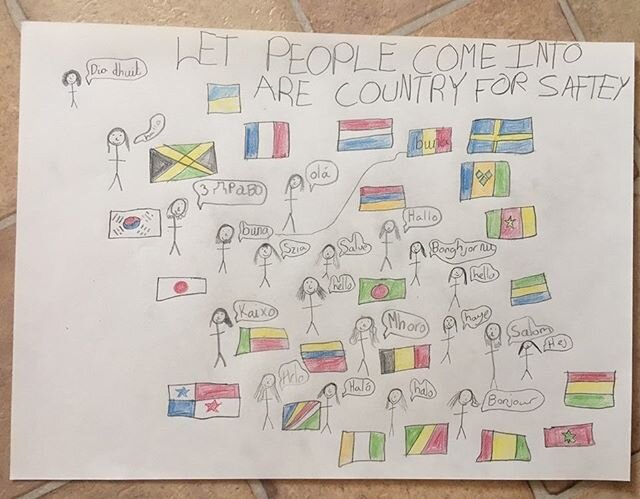 LET PEOPLE COME INTO
ARE COUNTRY FOR SAFTEY
Dia dhuit
olá
buna
buna
Szia
Salve
Hallo
Bonghjornu
hello
hello
Kaixo
Mhoro
haye
Salom
Hej
Halo
Haló
halo
Bonjour